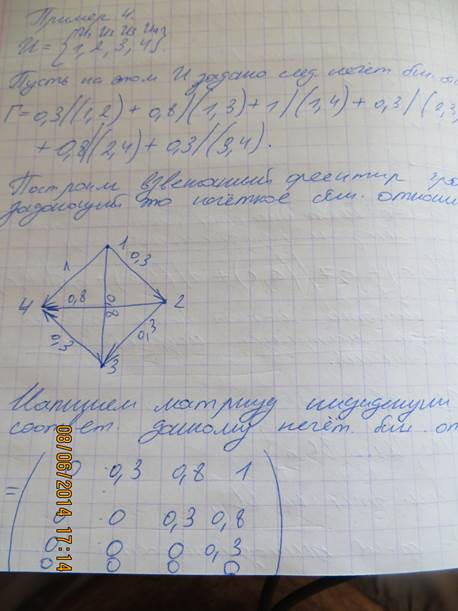 Пример 4.
u₁ u₂ u₃ u₄
U = {1, 2, 3, 4}
Пусть на этом U задано след. нечёт бин.
Г = 0,3/(1,2) + 0,8/(1,3) + 1/(1,4) + 0,3/(2,3)
+ 0,8/(2,4) + 0,3/(3,4).
Построим взвешанный ориентир
задающий это нечёткое бин. отнош
1
1
0,3
4
0,8
0,8
2
0,3
0,3
3
Напишем матрицу инциденции
соответ. данному нечёт. бин. от
= ( 0 0,3 0,8 1
0 0 0,3 0,8
0 0 0 0,3
0 0 0 0 )
08/06/2014 17:14